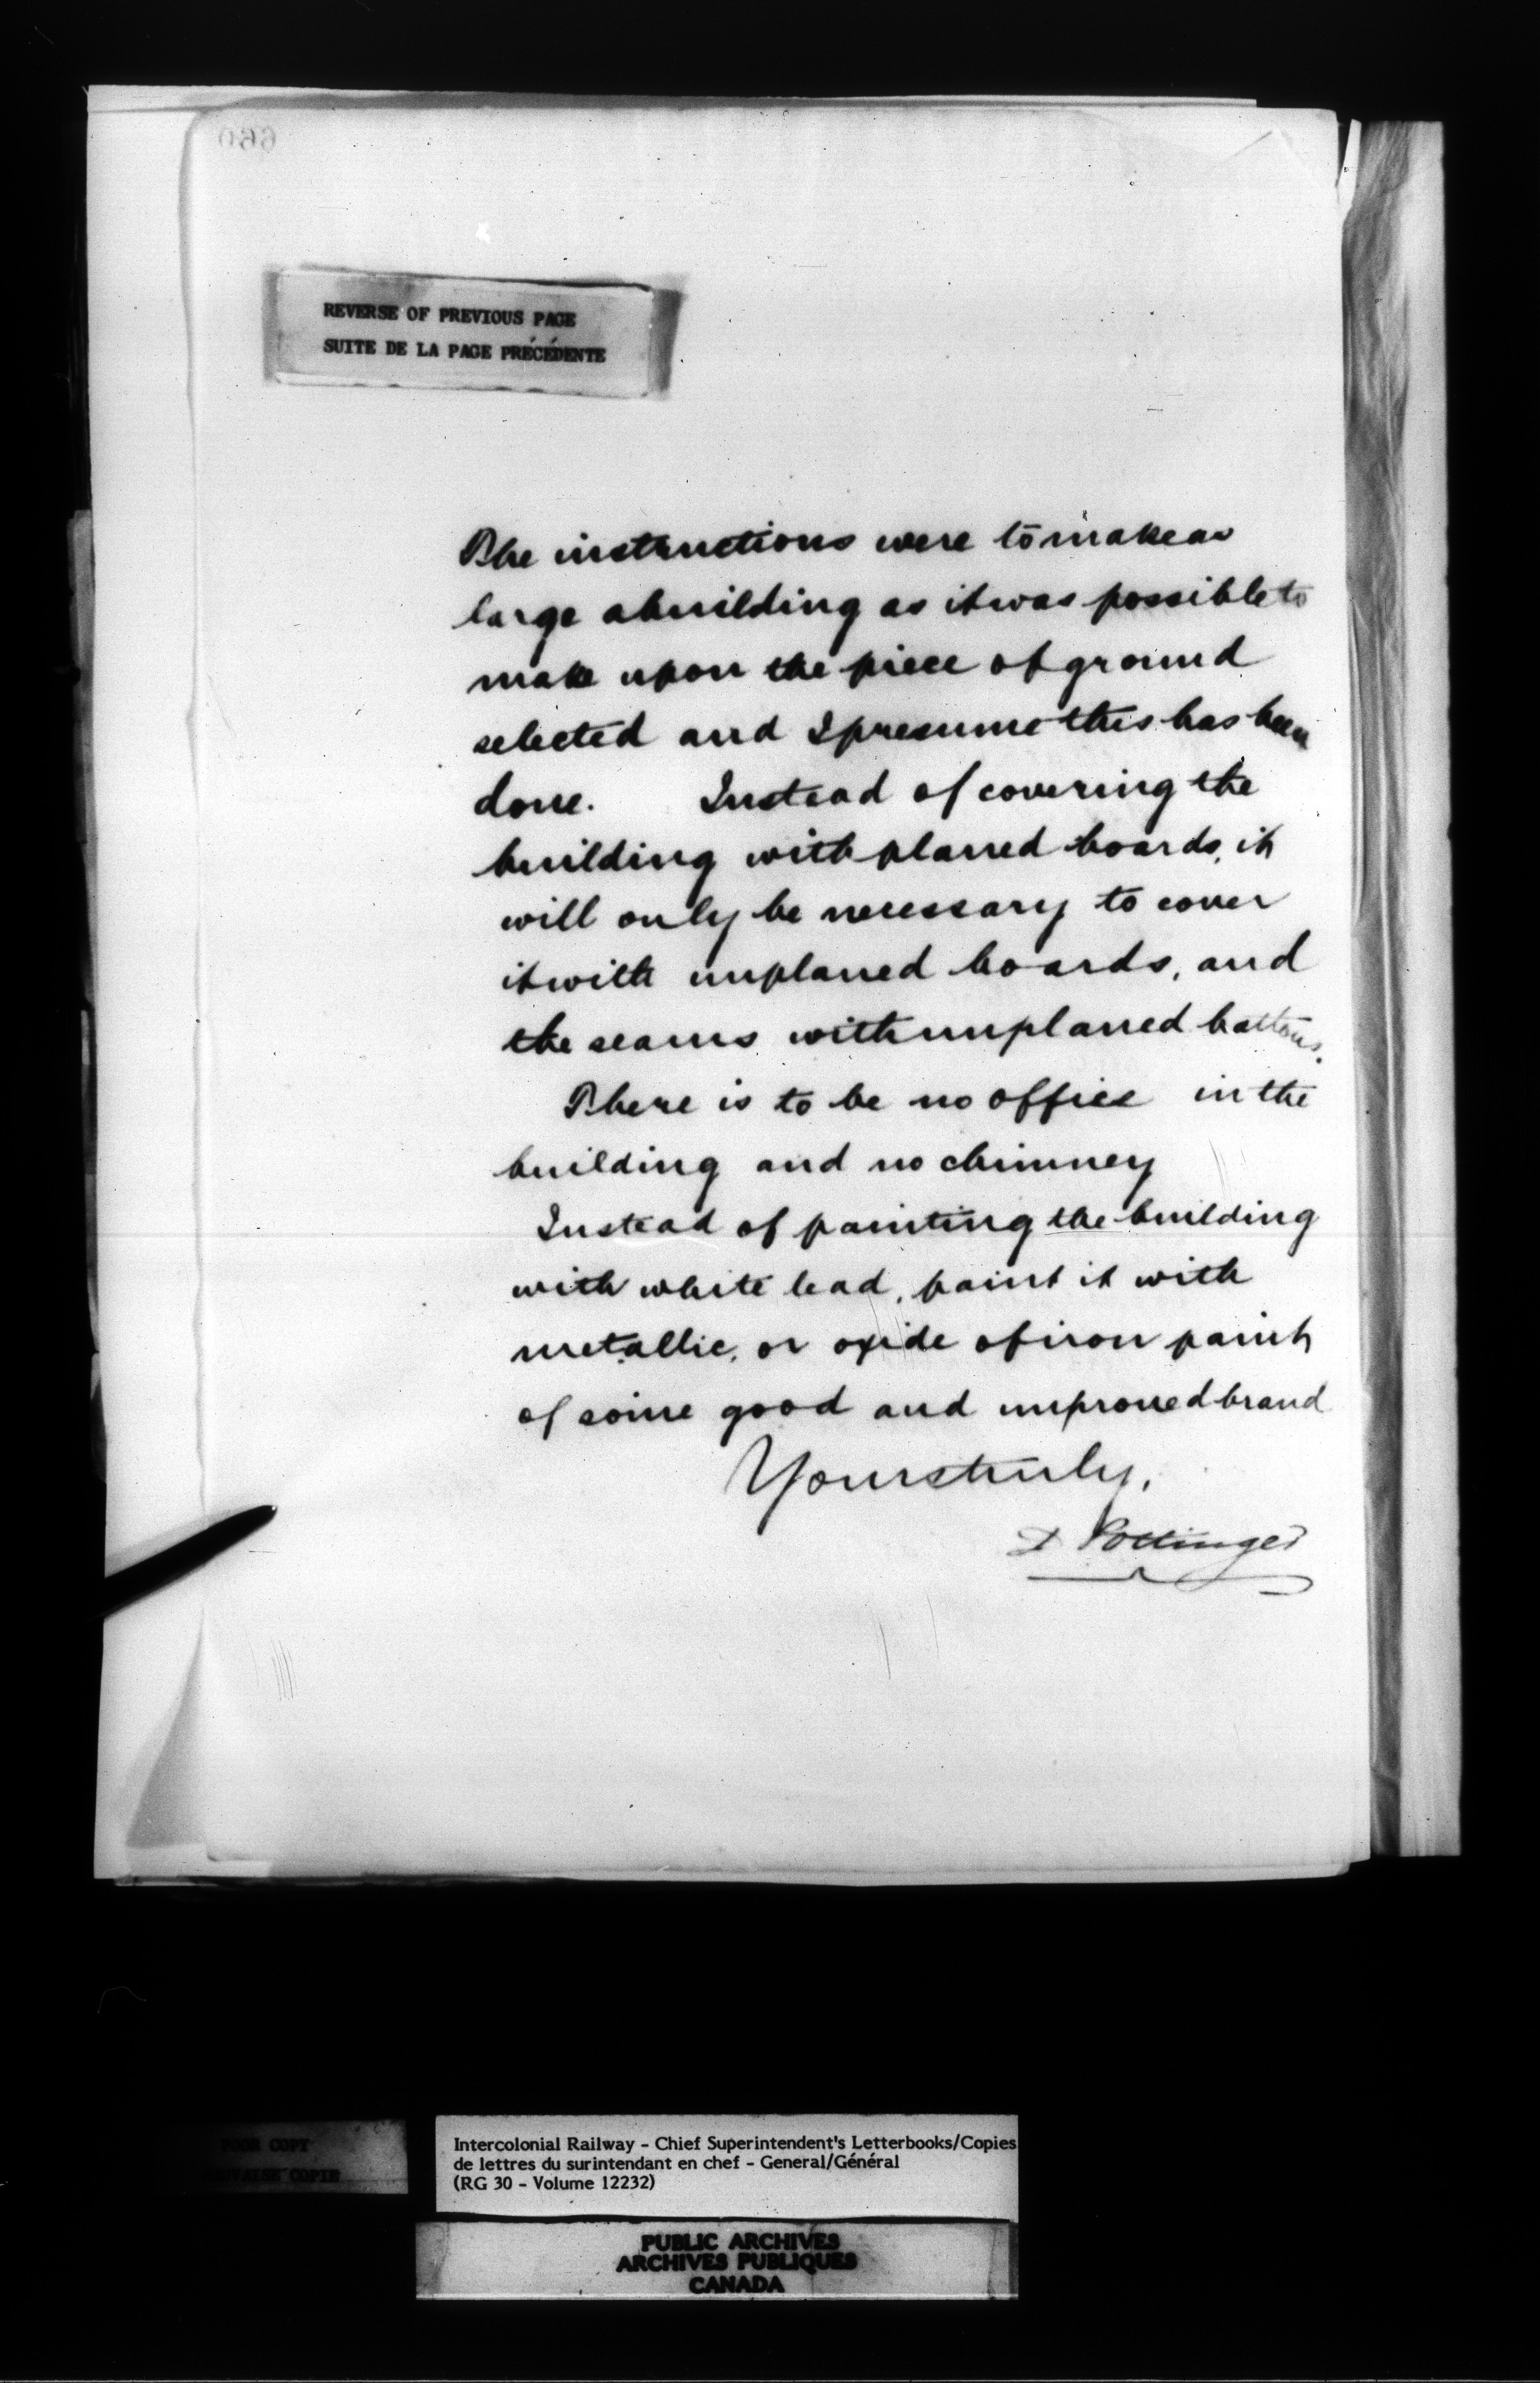 660
REVERSE OF PREVIOUS PAGE
SUITE DE LA PAGE PRÉCÉDENTE
The instructions were to make as
large a building as it was possible to
make upon the piece of ground
selected and I presume this has been
done. Instead of covering the
building with planed boards, it
will only be necessary to cover
it with unplaned boards, and
the seams with unplaned battens.
There is to be no office in the
building and no chimney
Instead of painting the building
with white lead, paint it with
metallic, or oxide of iron paint
of some good and improved brand
Yours truly,
D Pottinger
POOR COPY
MAUVAISE COPIE
Intercolonial Railway - Chief Superintendent's Letterbooks/Copies
de lettres du surintendant en chef - General/Général
(RG 30 - Volume 12232)
PUBLIC ARCHIVES
ARCHIVES PUBLIQUES
CANADA